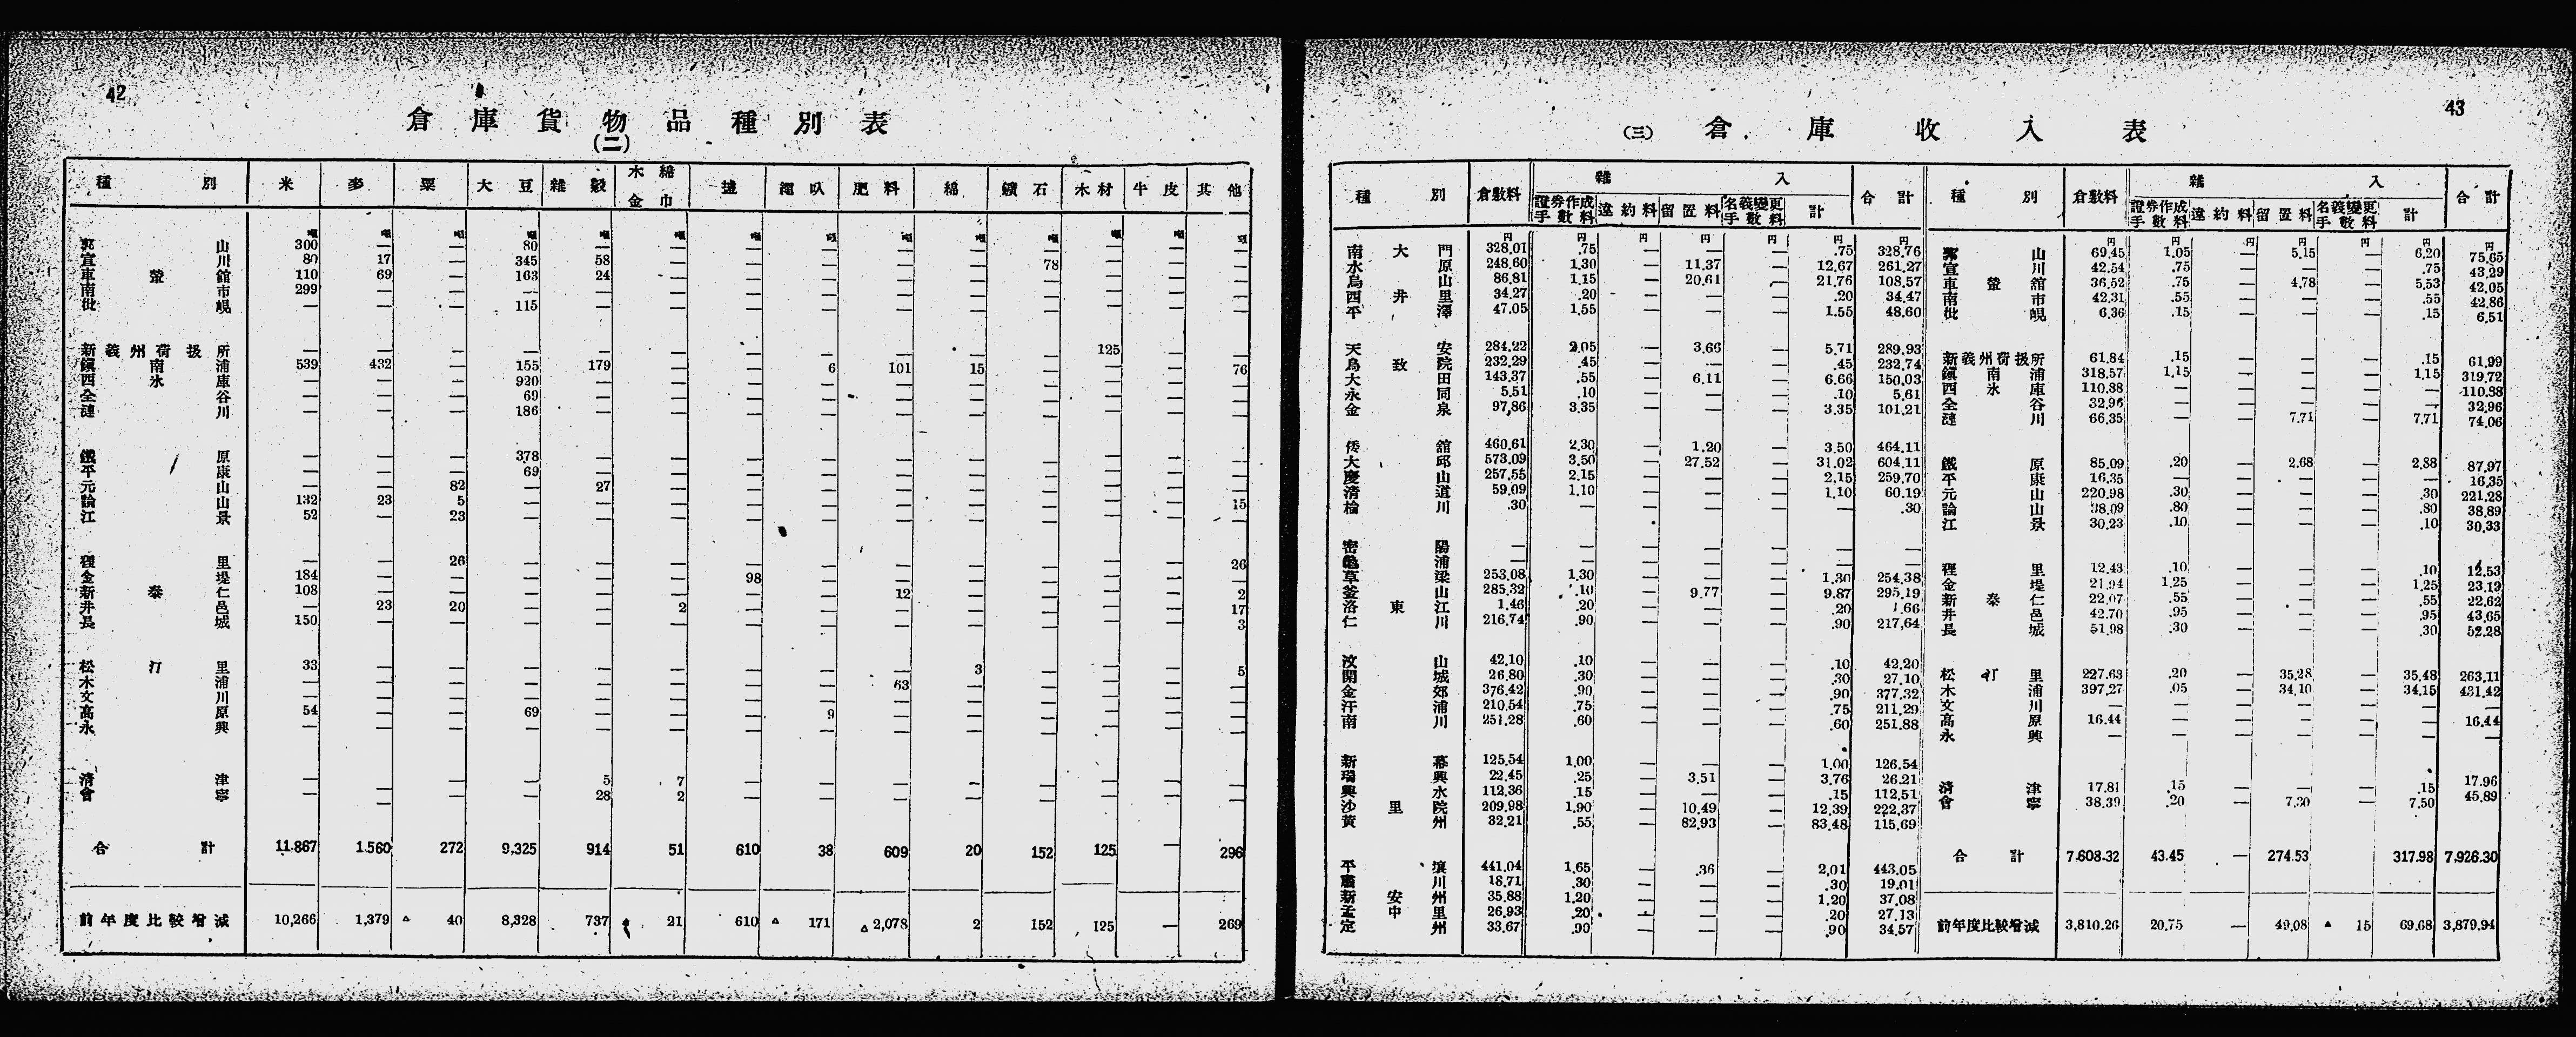 42
倉庫貨物品種別表
(二)
種別 米 麥 粟 大豆 雜穀 木綿金巾 鹽 繩叺 肥料 綿 鑛石 木材 牛皮 其他
郭山 300 — — 80 — — — — — — — — — —
宣川 80 17 — 345 58 — — — — — 78 — — —
車輦館 110 69 — 163 24 — — — — — — — — —
南市 299 — — — — — — — — — — — — —
枇峴 — — — 115 — — — — — — — — — —
新義州荷扱所 — — — — — — — — — — — 125 — —
鎭南浦 539 432 — 155 179 — — 6 101 15 — — — 76
西氷庫 — — — 920 — — — — — — — — — —
全谷 — — — 69 — — — — — — — — — —
漣川 — — — 186 — — — — — — — — — —
鐵原 — — — 378 — — — — — — — — — —
平康 — — — 69 — — — — — — — — — —
元山 — — 82 — 27 — — — — — — — — —
論山 132 23 5 — — — — — — — — — — 15
江景 52 — 23 — — — — — — — — — — —
裡里 — — 26 — — — — — — — — — — 26
金堤 184 — — — — — 98 — — — — — — —
新泰仁 108 — — — — — — — 12 — — — — 2
井邑 — 23 20 — — 2 — — — — — — — 17
長城 150 — — — — — — — — — — — — 3
松汀里 33 — — — — — — — — 3 — — — 5
木浦 — — — — — — — — 63 — — — — —
文川 — — — — — — — — — — — — — —
高原 54 — — 69 — — — 9 — — — — — —
永興 — — — — — — — — — — — — — —
清津 — — — — 5 7 — — — — — — — —
會寧 — — — — 28 2 — — — — — — — —
合計 11.867 1.560 272 9,325 914 51 610 38 609 20 152 125 — 296
前年度比較增減 10,266 1,379 △ 40 8,328 737 21 610 △ 171 △ 2,078 2 152 125 — 269
43
(三) 倉庫收入表
種別 倉敷料 雜入 合計 種別 倉敷料 雜入 合計
證券作成手數料 違約料 留置料 名義變更手數料 計 證券作成手數料 違約料 留置料 名義變更手數料 計
円 円 円 円 円 円 円 円 円 円 円 円 円 円
南大門 328.01 .75 — — — .75 328.76
水原 248.60 1.30 — 11.37 — 12.67 261.27
烏山 86.81 1.15 — 20.61 — 21.76 108.57
西井里 34.27 .20 — — — .20 34.47
平澤 47.05 1.55 — — — 1.55 48.60
天安 284.22 2.05 — 3.66 — 5.71 289.93
鳥致院 232.29 .45 — — — .45 232.74
大田 143.37 .55 — 6.11 — 6.66 150.03
永同 5.51 .10 — — — .10 5.61
金泉 97.86 3.35 — — — 3.35 101.21
倭舘 460.61 2.30 — 1.20 — 3.50 464.11
大邱 573.09 3.50 — 27.52 — 31.02 604.11
慶山 257.55 2.15 — — — 2.15 259.70
清道 59.09 1.10 — — — 1.10 60.19
楡川 .30 — — — — — .30
密陽 — — — — — — —
龜浦 — — — — — — —
草梁 253.08 1.30 — — — 1.30 254.38
釜山 285.32 .10 — 9.77 — 9.87 295.19
洛東江 1.46 .20 — — — .20 1.66
仁川 216.74 .90 — — — .90 217.64
汶山 42.10 .10 — — — .10 42.20
開城 26.80 .30 — — — .30 27.10
金郊 376.42 .90 — — — .90 377.32
汗浦 210.54 .75 — — — .75 211.29
南川 251.28 .60 — — — .60 251.88
新幕 125.54 1.00 — — — 1.00 126.54
瑞興 22.45 .25 — 3.51 — 3.76 26.21
興水 112.36 .15 — — — .15 112.51
沙里院 209.98 1.90 — 10.49 — 12.39 222.37
黃州 32.21 .55 — 82.93 — 83.48 115.69
平壤 441.04 1.65 — .36 — 2.01 443.05
川 18.71 .30 — — — .30 19.01
新安州 35.88 1.20 — — — 1.20 37.08
孟中里 26.93 .20 — — — .20 27.13
定州 33.67 .90 — — — .90 34.57
郭山 69.45 1.05 — 5.15 — 6.20 75.65
宣川 42.54 .75 — — — .75 43.29
車輦舘 36.52 .75 — 4.78 — 5.53 42.05
南市 42.31 .55 — — — .55 42.86
枇峴 6.36 .15 — — — .15 6.51
新義州荷扱所 61.84 .15 — — — .15 61.99
鎭南浦 318.57 1.15 — — — 1.15 319.72
西氷庫 110.38 — — — — — 110.38
全谷 32.96 — — — — — 32.96
漣川 66.35 — — 7.71 — 7.71 74.06
鐵原 85.09 .20 — 2.68 — 2.88 87.97
平康 16.35 — — — — — 16.35
元山 220.98 .30 — — — .30 221.28
論山 38.09 .80 — — — .80 38.89
江景 30.23 .10 — — — .10 30.33
裡里 12.43 .10 — — — .10 12.53
金堤 21.94 1.25 — — — 1.25 23.19
新泰仁 22.07 .55 — — — .55 22.62
井邑 42.70 .95 — — — .95 43.65
長城 51.98 .30 — — — .30 52.28
松汀里 227.63 .20 — 35.28 — 35.48 263.11
木浦 397.27 .05 — 34.10 — 34.15 431.42
文川 — — — — — — —
高原 16.44 — — — — — 16.44
永興 — — — — — — —
清津 17.81 .15 — — — .15 17.96
會寧 38.39 .20 — 7.30 — 7.50 45.89
合計 7.608.32 43.45 — 274.53 317.98 7,926.30
前年度比較增減 3,810.26 20.75 — 49.08 △ 15 69.68 3,879.94